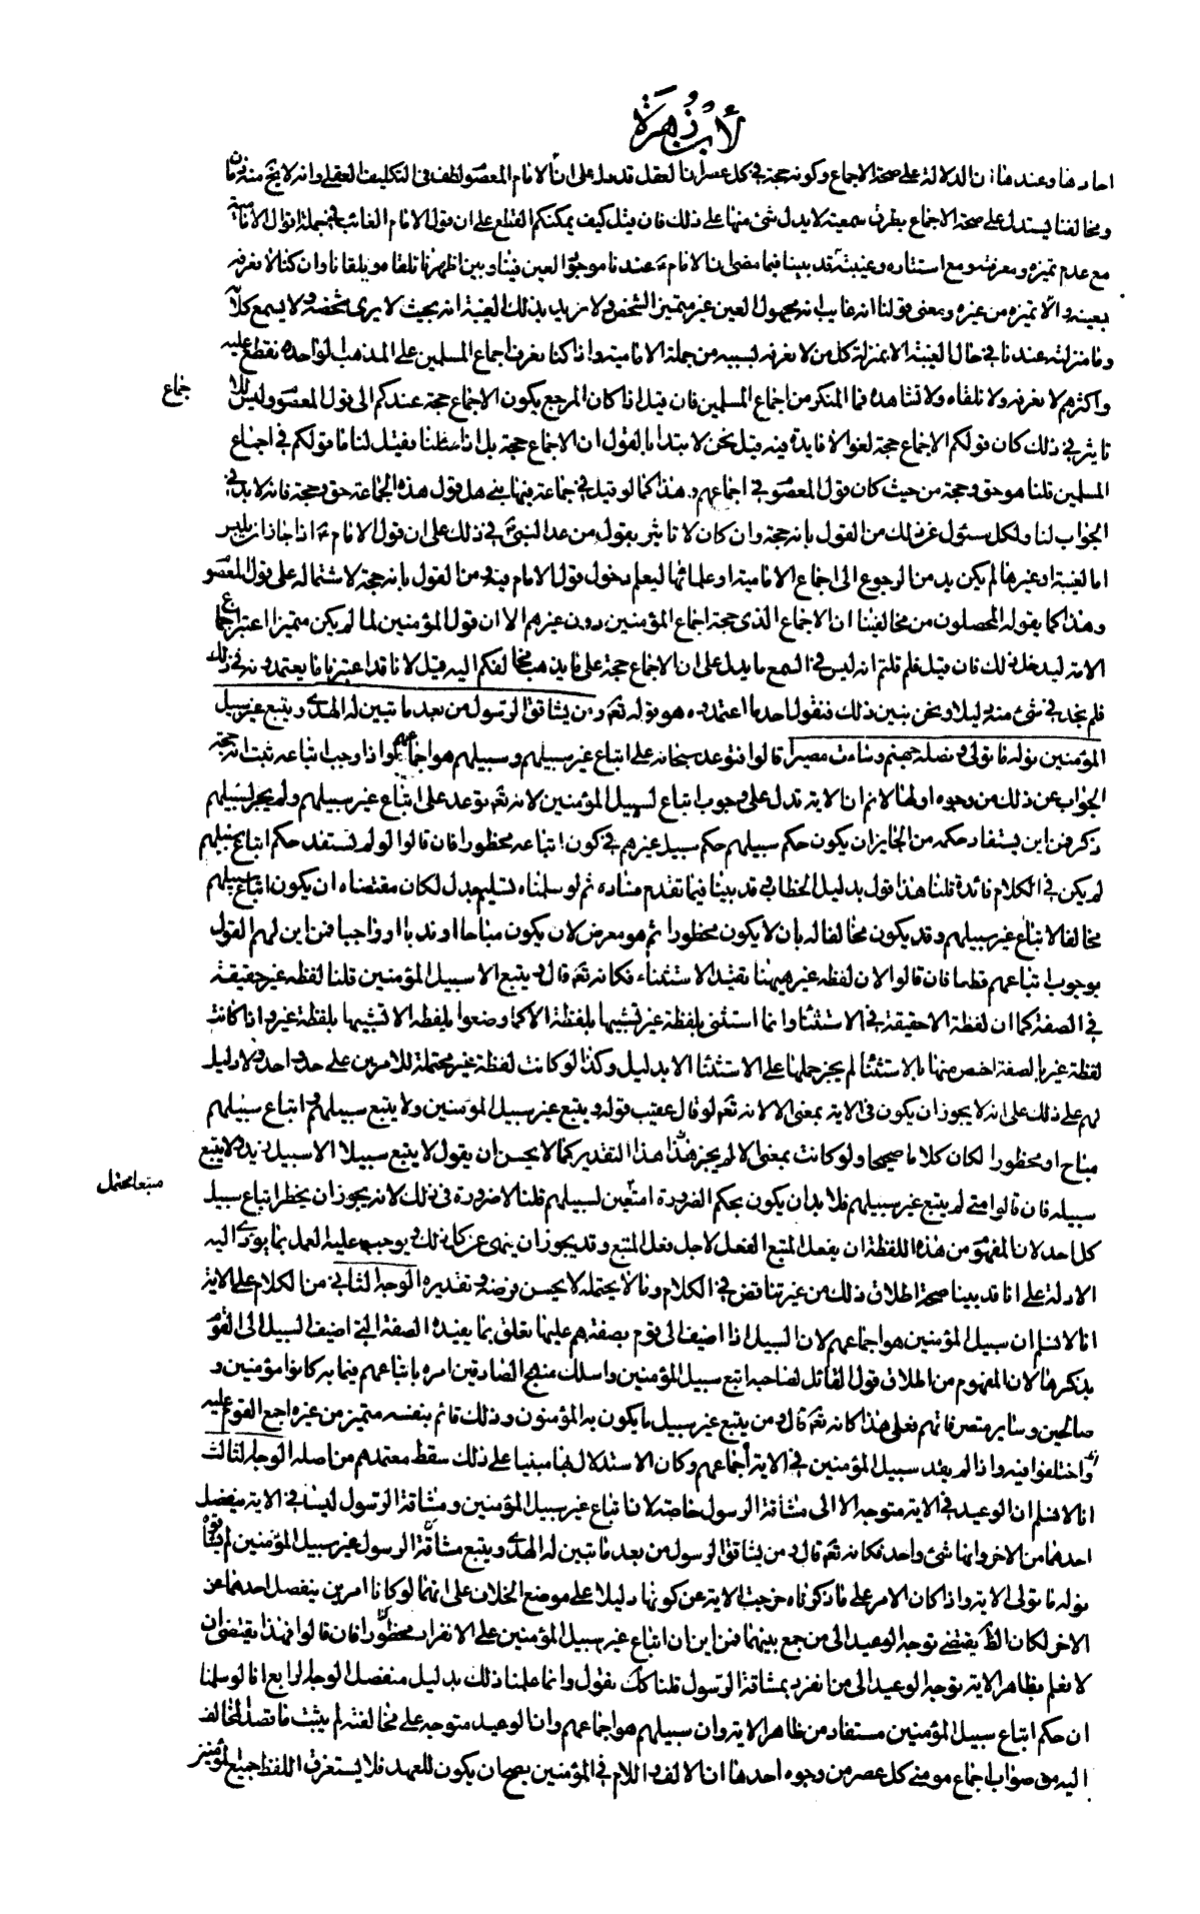 لابن زهرة
احادها وعندنا ان الدلالة على صحة الاجماع وكونه حجة في كل عصر ان العقل قد دل على ان الامام المعصوم لطف في التكليف العقلي وانه لا يخ منه زمان
ومخالفنا يستدل على صحة الاجماع بطرق سمعية لا يدل شئ منها على ذلك فان قيل كيف يمكنكم القطع على ان قول الامام الغائب في جملة اقوال الامامية
مع عدم تميزه ومعرفته ومع استتاره وغيبته قد بينا فيما مضى ان الامام ع عندنا موجود العين فينا وبين اظهرنا نلقاه ويلقانا وان كنا لا نعرفه
بعينه ولا تميزه من غيره ومعنى قولنا انه غايب انه مجهول العين غير متميز الشخص ولا نريد بذلك الغيبة انه بحيث لا يرى شخصه ولا يسمع كلامه
وما منزلته عندنا في حال الغيبة الا بمنزلة كل من لا نعرفه بنسبه من جملة الامامية واذا كنا نعرف اجماع المسلمين على المذهب الواحد ونقطع عليه
جماع
واكثرهم لا نعرفه ولا نلقاه ولا نشاهده فما المنكر من اجماع المسلمين فان قيل اذا كان المرجع بكون الاجماع حجة عندكم الى قول المعصوم وليس لل
تاثير في ذلك كان قولكم الاجماع حجة لغوا لا فايدة فيه قيل نحن لا نبتدأ بالقول ان الاجماع حجة بل اذا سئلنا فقيل لنا ما قولكم في اجماع
المسلمين قلنا هو حق وحجة من حيث كان قول المعصوم في اجماعهم وهذا كما لو قيل في جماعة فيها نبي هل قول هذه الجماعة حق وحجة فانه لا بد في
الجواب لنا ولكل مسئول عن ذلك من القول بانه حجة وان كان لا تاثير بقول من عدا النبي في ذلك على ان قول الامام ع اذا جاز ان يلتبس
اما لغيبة او غيرها لم يكن بد من الرجوع الى اجماع الامامية او علمائها ليعلم دخول قول الامام فيه ومن القول بانه حجة لاشتماله على قول المعصوم
وهذا كما يقوله المحصلون من مخالفينا ان الاجماع الذي حجة اجماع المؤمنين دون غيرهم الا ان قول المؤمنين لما لم يكن متميزا اعتبر اجماع
الامة ليدخل ذلك فان قيل فلم قلتم انه ليس في السمع ما يدل على ان الاجماع حجة على ما يذهب مخالفكم اليه قيل لانا قد اعتبرنا ما يعتمدونه في ذلك
فلم نجد في شئ منه دليلا ونحن نبين ذلك فنقول احد ما اعتمدوه هو قوله تعم ومن يشاقق الرسول من بعد ما تبين له الهدى ويتبع غير سبيل
المؤمنين نوله ما تولى ونصله جهنم وساءت مصيرا قالوا فتوعد سبحانه على اتباع غير سبيلهم وسبيلهم هو اجماعهم واذا وجب اتباعه ثبت انه حجة
الجواب عن ذلك من وجوه اولها لانم ان الاية تدل على وجوب اتباع لسبيل المؤمنين لانه تعم توعد على اتباع غير سبيلهم ولم يجر لسبيلهم
ذكر فمن اين يستفاد حكمه من الجايز ان يكون حكم سبيلهم حكم سبيل غيرهم في كون اتباعه محظورا فان قالوا لو لم نستفد حكم اتباع سبيلهم
لم يكن في الكلام فائدة قلنا هذا قول بدليل الخطاب وقد بينا فيما تقدم فساده ثم لو سلمناه تسليم جدل لكان مقتضاه ان يكون اتباع سبيلهم
مخالفا لاتباع غير سبيلهم وقد يكون مخالفا له بان لا يكون محظورا ثم هو معرض لان يكون مباحا او ندبا او واجبا فمن اين لهم القول
بوجوب اتباعهم قطعا فان قالوا لان لفظة غير ههنا تفيد الاستثناء فكانه تعم قال ويتبع الا سبيل المؤمنين قلنا لفظة غير حقيقة
في الصفة كما ان لفظة الا حقيقة في الاستثنا وانما استثنى بلفظة غير تشبيها بلفظة الا كما وضعوا بلفظة الا تشبيها بلفظة غير واذا كانت
لفظة غير بالصفة اخص منها بالاستثنا لم يجز حملها على الاستثنا الا بدليل وكذا لو كانت لفظة غير محتملة للامرين على حد واحد ولا دليل
لهم على ذلك على انه لا يجوز ان يكون في الاية بمعنى الا لانه تعم لو قال عقيب قوله ويتبع غير سبيل المؤمنين ولا يتبع سبيلهم واتباع سبيلهم
مباح او محظورا لكان كلاما صحيحا ولو كانت بمعنى الا لم يجز هذا هذا التقدير كما لا يحسن ان يقول لا يتبع سبيلا الا سبيل زيد ولا يتبع
متبعا محتمل
سبيله فان قالوا متى لم يتبع غير سبيلهم فلا بد ان يكون بحكم الضرورة متبعين لسبيلهم قلنا لا ضرورة في ذلك لانه يجوز ان يحظر اتباع سبيل
كل احد لان المفهوم من هذه اللفظة ان يفعل المتبع الفعل لاجل فعل المتبع وقد يجوز ان ينهى عن كل ذلك ويوجب عليه العمل بما يؤدي اليه
الادلة على انا قد بينا صحة اطلاق ذلك من غير تناقض في الكلام وما لا يحتمله لا يحسن فرضه وتقديره الوجه الثاني من الكلام على الاية
انا لا نسلم ان سبيل المؤمنين هو اجماعهم لان السبيل اذا اضيف الى قوم بصفة هم عليها تعلق بما يفيده الصفة التي اضيف السبيل الى القوم
بذكرها لان المفهوم من اطلاق قول القائل لصاحبه اتبع سبيل المؤمنين واسلك منهج الصادقين امره باتباعهم فيما به كانوا مؤمنين و
صالحين وساير فعلى هذا كانه تعم قال ومن يتبع غير سبيل ما يكون به المؤمنون وذلك قائم بنفسه متميز من غيره اجمع القوم عليه
او اختلفوا فيه واذا لم يفد سبيل المؤمنين في الاية اجماعهم وكان الاستدلال بها مبنيا على ذلك سقط معتمدهم من اصله الوجه الثالث
انا لا نسلم ان الوعيد في الاية متوجه الا الى مشاقة الرسول خاصة لان اتباع غير سبيل المؤمنين ومشاقة الرسول ليسا في الاية ينفصل
احدهما من الاخر وانهما شئ واحد فكانه تعم قال ومن يشاقق الرسول من بعد ما تبين له الهدى ويتبع مشاقة الرسول غير سبيل المؤمنين
نوله ما تولى الاية واذا كان الامر على ما ذكرناه خرجت الاية عن كونها دليلا على موضع الخلاف على انهما لو كانا امرين ينفصل احدهما عن
الاخر لكان الظ يقتضى توجه الوعيد الى من جمع بينهما فمن اين ان اتباع غير سبيل المؤمنين على الانفراد محظور فان قالوا فهذا يقتضى ان
لا نعلم بظاهر الاية توجه الوعيد الى من انفرد بمشاقة الرسول قلنا كك نقول وانما علمنا ذلك بدليل منفصل الوجه الرابع انا لو سلمنا
ان حكم اتباع سبيل المؤمنين مستفاد من ظاهر الاية وان سبيلهم هو اجماعهم وان الوعيد متوجه على مخالفته لم يثبت ما قصد المخالف
اليه من صواب اجماع مومنى كل عصر من وجوه احدها ان الالف واللام في المؤمنين يصح ان يكون للعهد فلا يستغرق اللفظ جميع المؤمنين